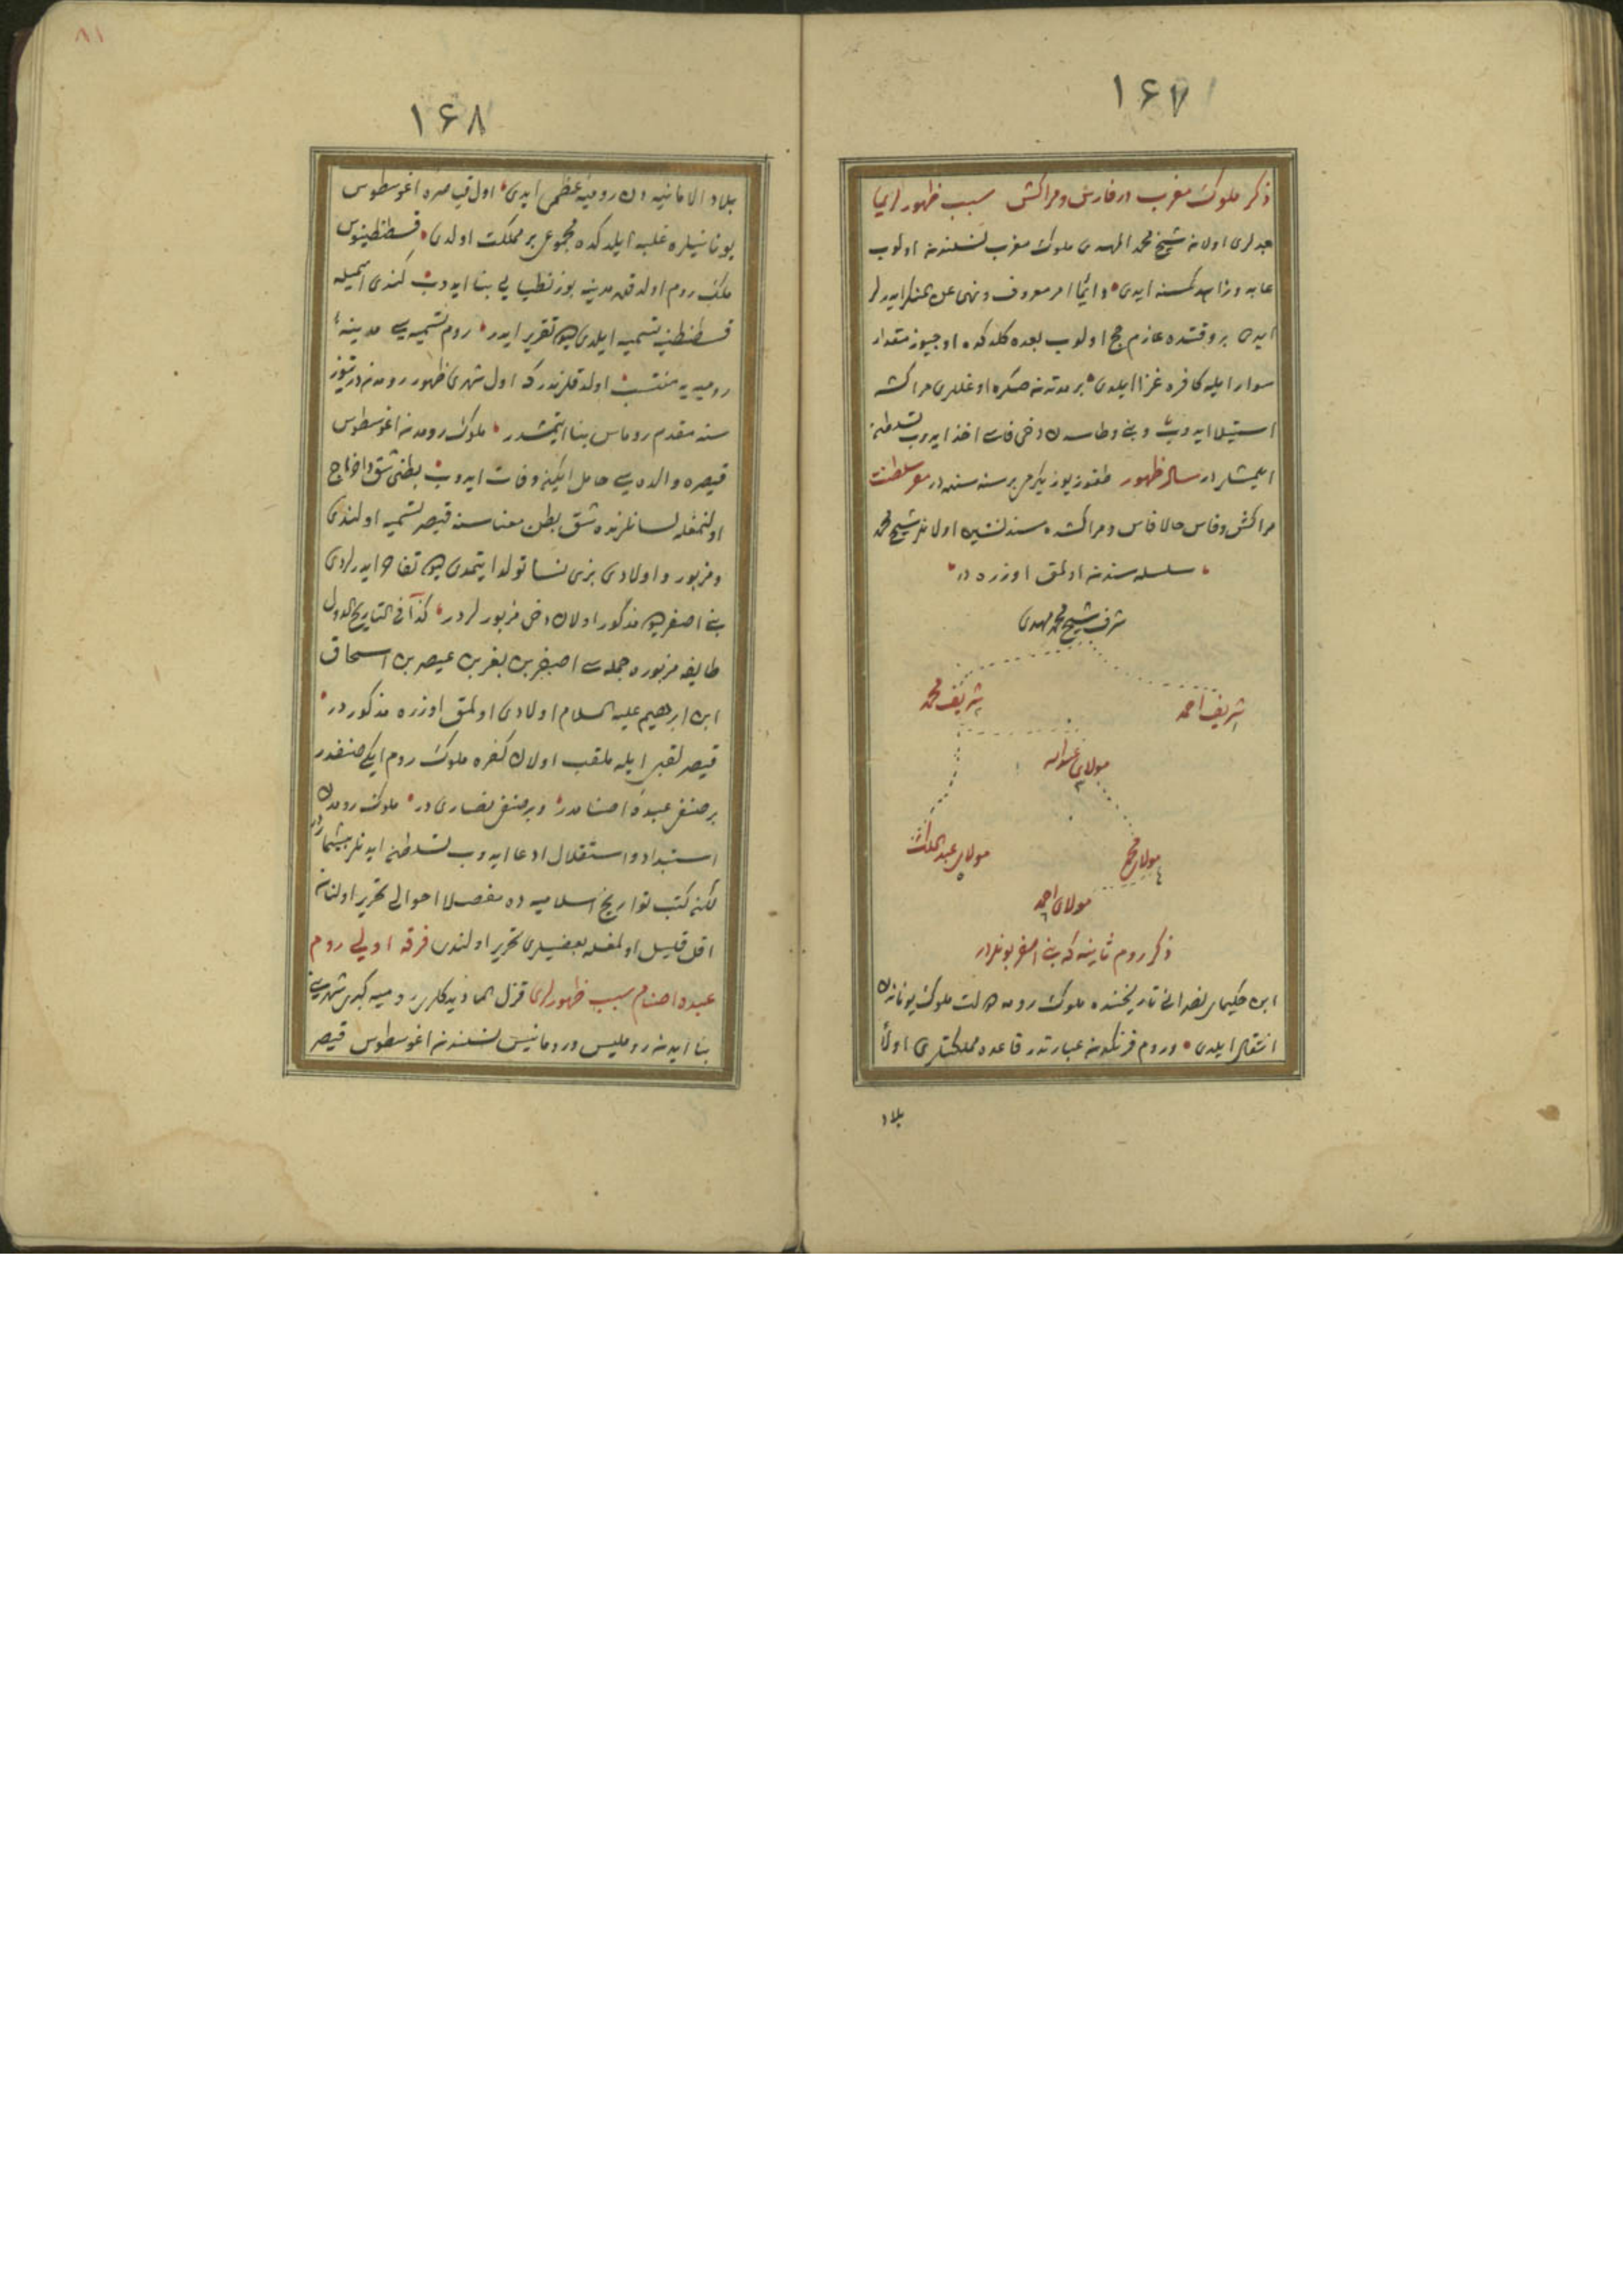 ۱۶۷
ذكر ملوك مغرب در فارس و مراكش سبب ظهور لری
جدلری اولان شیخ محمد المهدی ملوك مغرب نسلندن اولوب
عابد و زاهد كمسنه ایدی دائما امر معروف و نهی عن المنكر ایدرلر
ایدی بر وقتده عازم حج اولوب بعده كلدكده اوچیوز مقدار
سوار ایله كافره غزا ایلدی بر مدتدن صكره اوغللری مراكشه
استیلا ایدوب و بنی وطاسدن دخی فاسی اخذ ایدوب تسلطن
ایلمشلر در سال ظهور طقوز یوز یكرمی بر سنه سنده در مقر سلطنت
مراكش و فاس حالا فاس و مراكشده مسند نشین اولانلر شیخ محمد
سلسله سندن اولمق اوزره در
شریف شیخ محمد مهدی
شریف احمد
شریف محمد
مولای عبدالله
مولای محمد
مولای عبدالملك
مولای احمد
ذكر روم ثانیه كه بنی اصفر بونلردر
ابن حكیم نصرانی تاریخنده ملوك رومه دولت ملوك یوناندن
انتقال ایلدی و روم فرنكدن عبارتدر قاعده مملكتلری اولا
بلاد
۸۱
۱۶۸
بلاد المانیه دن رومیه عظمی ایدی اول قیصره اغوسطوس
یونانیلره غلبه ایلدكده مجموعی بر مملكت اولدی قسطنطینوس
ملك روم اولدقده مدینه بوزنطیایی بنا ایدوب كندی اسمیله
قسطنطنیه تسمیه ایلدی دیو تقریر ایدر روم تسمیه سی مدینه
رومیه یه منتسب اولدقلرندندر كه اول شهری ظهور رومدن درتیوز
سنه مقدم روماس بنا ایتمشدر ملوك رومدن اغوسطوس
قیصره والده سی حامل ایكن وفات ایدوب بطنی شق و اخراج
اولنمغله لسانلرنده شق بطن معناسنه قیصر تسمیه اولندی
و مزبور و اولادی بزی نسا تولد ایتمدی دیو تفاخر ایدرلردی
بنی اصفر دیو مذكور اولان دخی مزبورلردر كذا فی التاریخ الدول
طایفه مزبوره جمله سی اصفر بن نفر بن عیصر بن اسحاق
ابن ابرهیم علیه السلام اولادی اولمق اوزره مذكور در
قیصر لقبی ایله ملقب اولان كفره ملوك روم ایكی صنفدر
بر صنفی عبده اصنامدر و بر صنفی نصاری در ملوك رومدن
استبداد و استقلال ادعا ایدوب تسلطن ایدنلر بیشمار در
لكن كتب تواریخ اسلامیه ده مفصلا احوالی تحریر اولنان
اقل قلیل اولمغله بعضیلری تحریر اولندی فرقه اولی روم
عبده اصنام سبب ظهور لری قزل الما دیدكلری رومیه كبری شهرینی
بنا ایدن روملیس و رومانیس نسلندن اغوسطوس قیصر